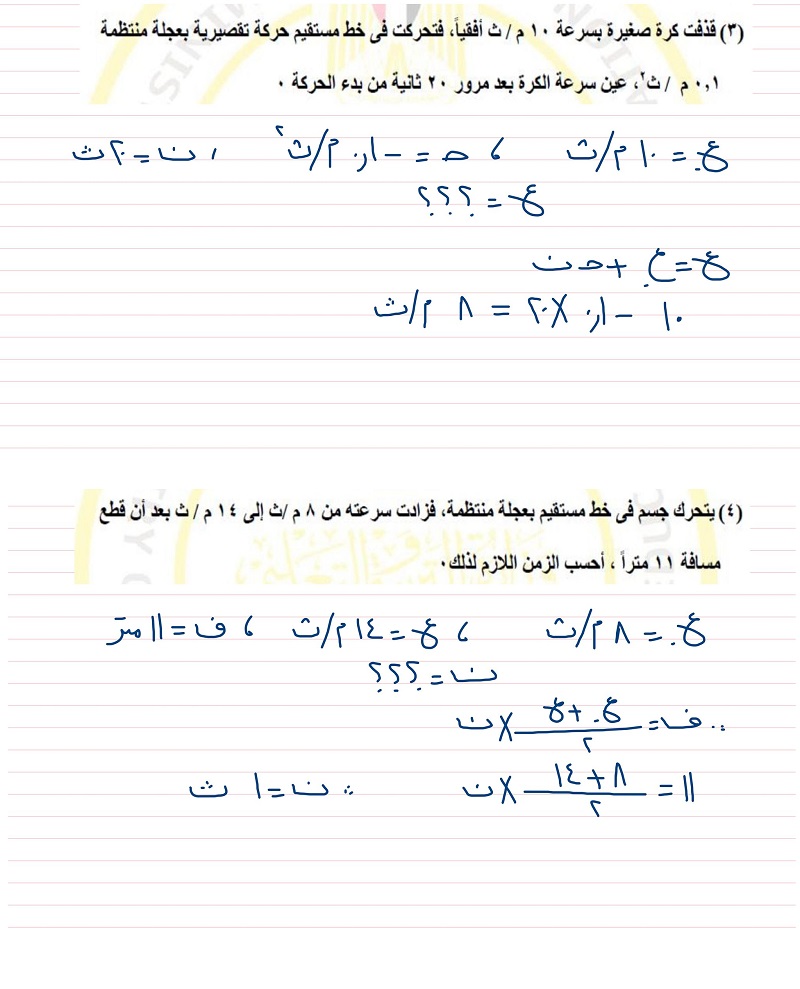 (٣) قذفت كرة صغيرة بسرعة ١٠ م / ث أفقياً، فتحركت فى خط مستقيم حركة تقصيرية بعجلة منتظمة
٠,١ م / ث٢، عين سرعة الكرة بعد مرور ٢٠ ثانية من بدء الحركة ٠
ع. = ١٠ م/ث ، حـ = -٠,١ م/ث٢ ، ن = ٢٠ ث
ع = ؟؟؟
ع = ع. + حـ ن
١٠ - ٠,١ × ٢٠ = ٨ م/ث
(٤) يتحرك جسم فى خط مستقيم بعجلة منتظمة، فزادت سرعته من ٨ م /ث إلى ١٤ م / ث بعد أن قطع
مسافة ١١ متراً ، أحسب الزمن اللازم لذلك٠
ع. = ٨ م/ث ، ع = ١٤ م/ث ، ف = ١١ متر
ن = ؟؟؟
∵ ف = (ع. + ع)/٢ × ن
١١ = (٨ + ١٤)/٢ × ن ∴ ن = ١ ث